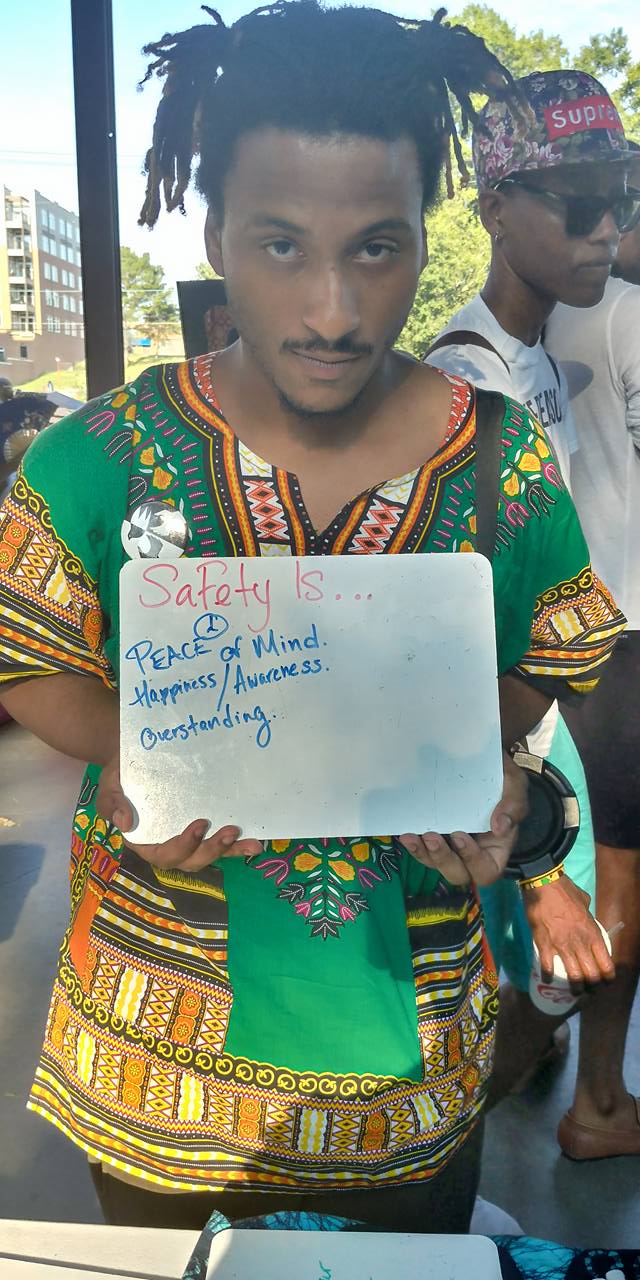 Supre
SaFety Is...
1
PEACE of Mind.
Happiness/Awareness.
Overstanding.